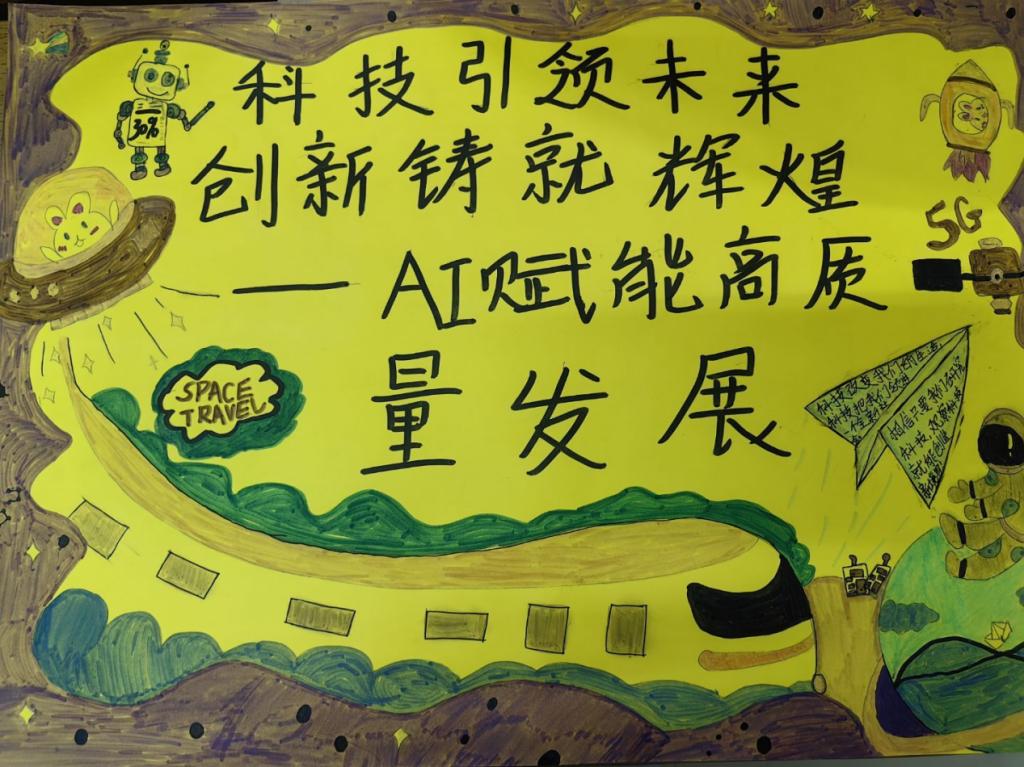 科技引领未来
创新铸就辉煌
—AI赋能高质
量发展
30%
5G
SPACE
TRAVEL
科技改变我们的生活,
科技把我们
相信只要我们
科技,
就能创造